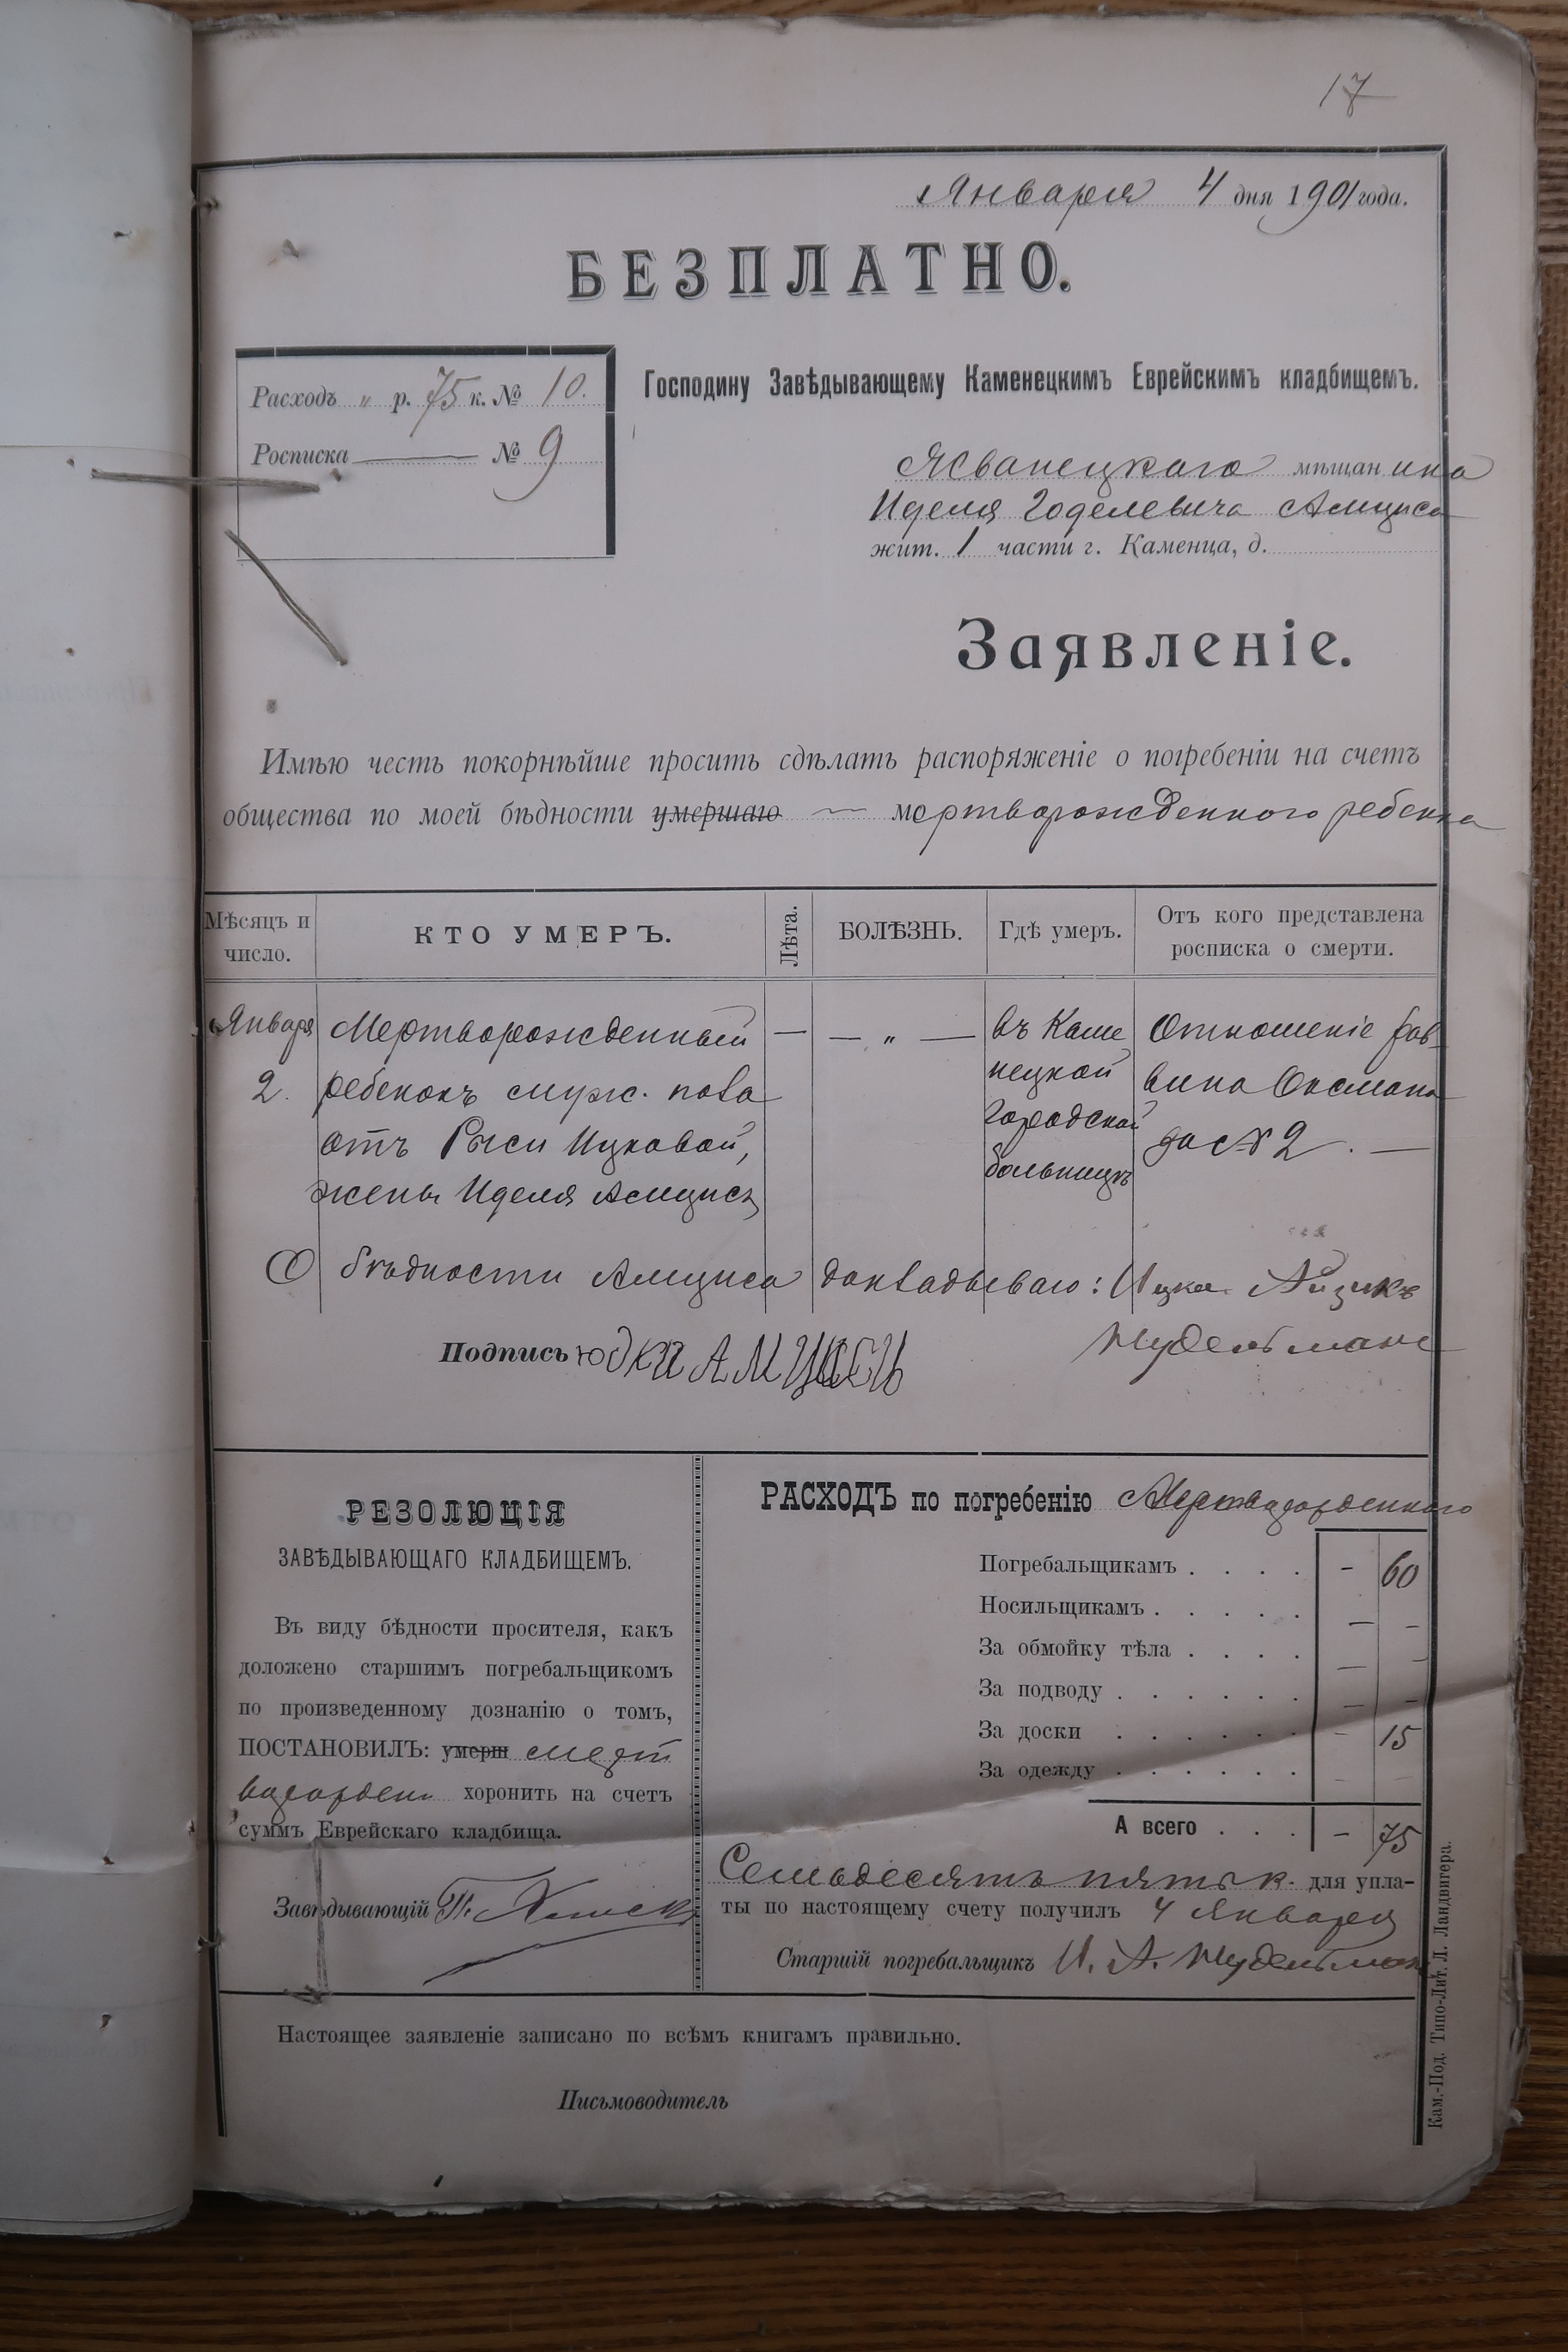 17
Января 4 дня 1901 года.
БЕЗПЛАТНО.
Расходъ „ р. 75 к. № 10.
Росписка — № 9
Господину Завѣдывающему Каменецкимъ Еврейскимъ кладбищемъ.
Жванецкаго мѣщанина
Иделя Годелевича Амциса
жит. 1 части г. Каменца, д.
Заявленіе.
Имѣю честь покорнѣйше просить сдѣлать распоряженіе о погребеніи на счетъ
общества по моей бѣдности умершаго — мертворожденного ребенка
Мѣсяцъ и число.
КТО УМЕРЪ.
Лѣта.
БОЛѢЗНЬ.
Гдѣ умеръ.
Отъ кого представлена росписка о смерти.
Января 2.
Мертворожденный
ребенокъ муж. пола
отъ Рыси Ицковой,
жены Иделя Амциса
—
— „ —
въ Каме
нецкой
городской
больницѣ
Отношеніе рав
вина Оксмана
за № 2. —
О бѣдности Амциса докладываю: Ицко Айзикъ
Нудельманъ
Подпись юдка АМЦИСЬ
РЕЗОЛЮЦІЯ
ЗАВѢДЫВАЮЩАГО КЛАДБИЩЕМЪ.
Въ виду бѣдности просителя, какъ
доложено старшимъ погребальщикомъ
по произведенному дознанію о томъ,
ПОСТАНОВИЛЪ: умерш мерт
ворожден хоронить на счетъ
суммъ Еврейскаго кладбища.
Завѣдывающій
РАСХОДЪ по погребенію Мертворожденного
Погребальщикамъ . . . . - 60
Носильщикамъ . . . . . — -
За обмойку тѣла . . . . — -
За подводу . . . . . . — -
За доски . . . . . . - 15
За одежду . . . . . . - -
А всего . . . - 75
Семьдесятъ пять к. для упла-
ты по настоящему счету получилъ 4 Января
Старшій погребальщикъ И. А. Нудельман
Настоящее заявленіе записано по всѣмъ книгамъ правильно.
Письмоводитель
Кам.-Под. Типо-Лит. Л. Ландвигера.